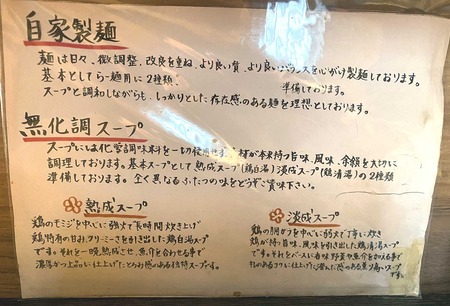 自家製麺
麺は日々、微調整、改良を重ね、より良い質、より良いバランスを心がけ製麺しております。
基本としてらー麺用に2種類 準備しております。
スープと調和しながらも、しっかりとした存在感のある麺を理想としております。
無化調スープ
スープには化学調味料を一切使用せず、素材が本来持つ旨味、風味、余韻を大切に
調理しております。基本スープとして熟成スープ(鶏白湯)淡成スープ(鶏清湯)の2種類
準備しております。全く異なるふたつの味をどうぞご賞味下さい。
熟成スープ
鶏のモミジを中心に強火で長時間炊き上げ
鶏特有の甘み、クリーミーさを引き出した鶏白湯スープ
です。それを一晩熟成させ、魚介を合わせる事で
濃厚かつ上品に仕上げたとろみ感のある特持スープです。
淡成スープ
鶏の胴がらを中心に弱火で丁寧に炊き
鶏が持つ旨味、風味を引き出した鶏清湯スープ
です。それをベースに香味野菜や魚介を加える事で
仕上げた